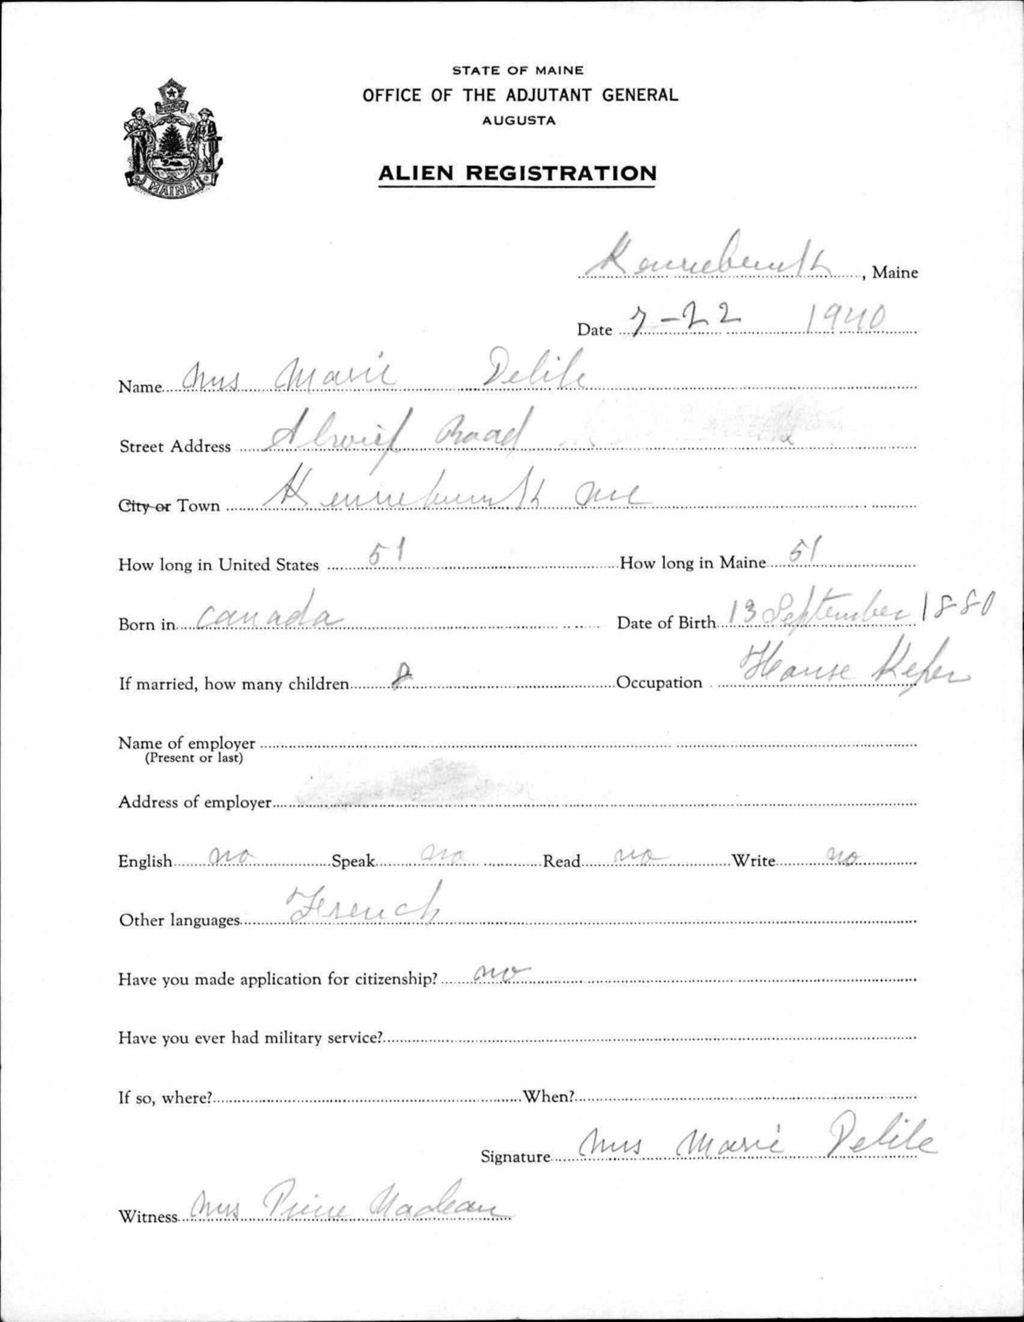 STATE OF MAINE
OFFICE OF THE ADJUTANT GENERAL
AUGUSTA
ALIEN REGISTRATION
MAINE
Kennebunk, Maine
Date 7-22 1940
Name Mrs Marie Delile
Street Address Alwief Road
City or Town Kennebunk Me
How long in United States 51 How long in Maine 51
Born in Canada Date of Birth 13 September 1880
If married, how many children 8 Occupation House Keper
Name of employer
(Present or last)
Address of employer
English no Speak no Read no Write no
Other languages French
Have you made application for citizenship? no
Have you ever had military service?
If so, where? When?
Signature Mrs Marie Delile
Witness Mrs Pierre Nadeau